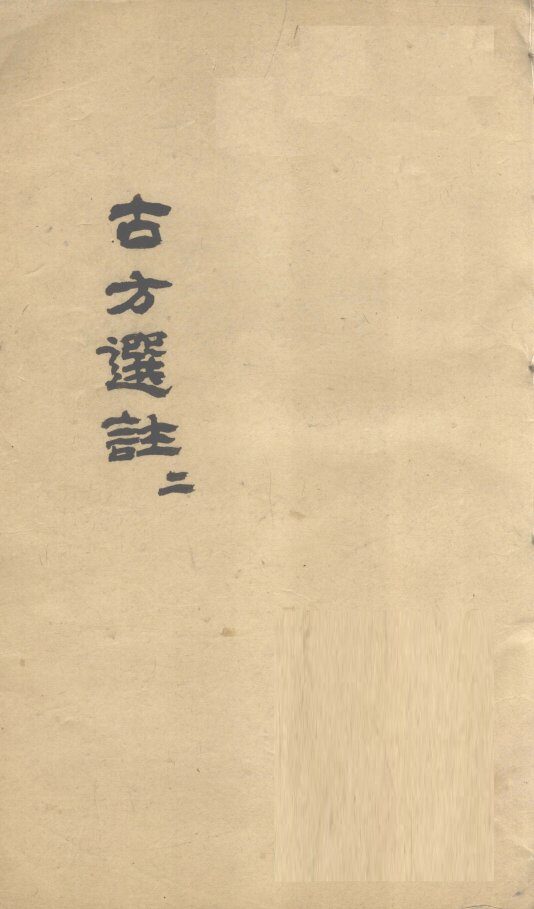 古方選註
二